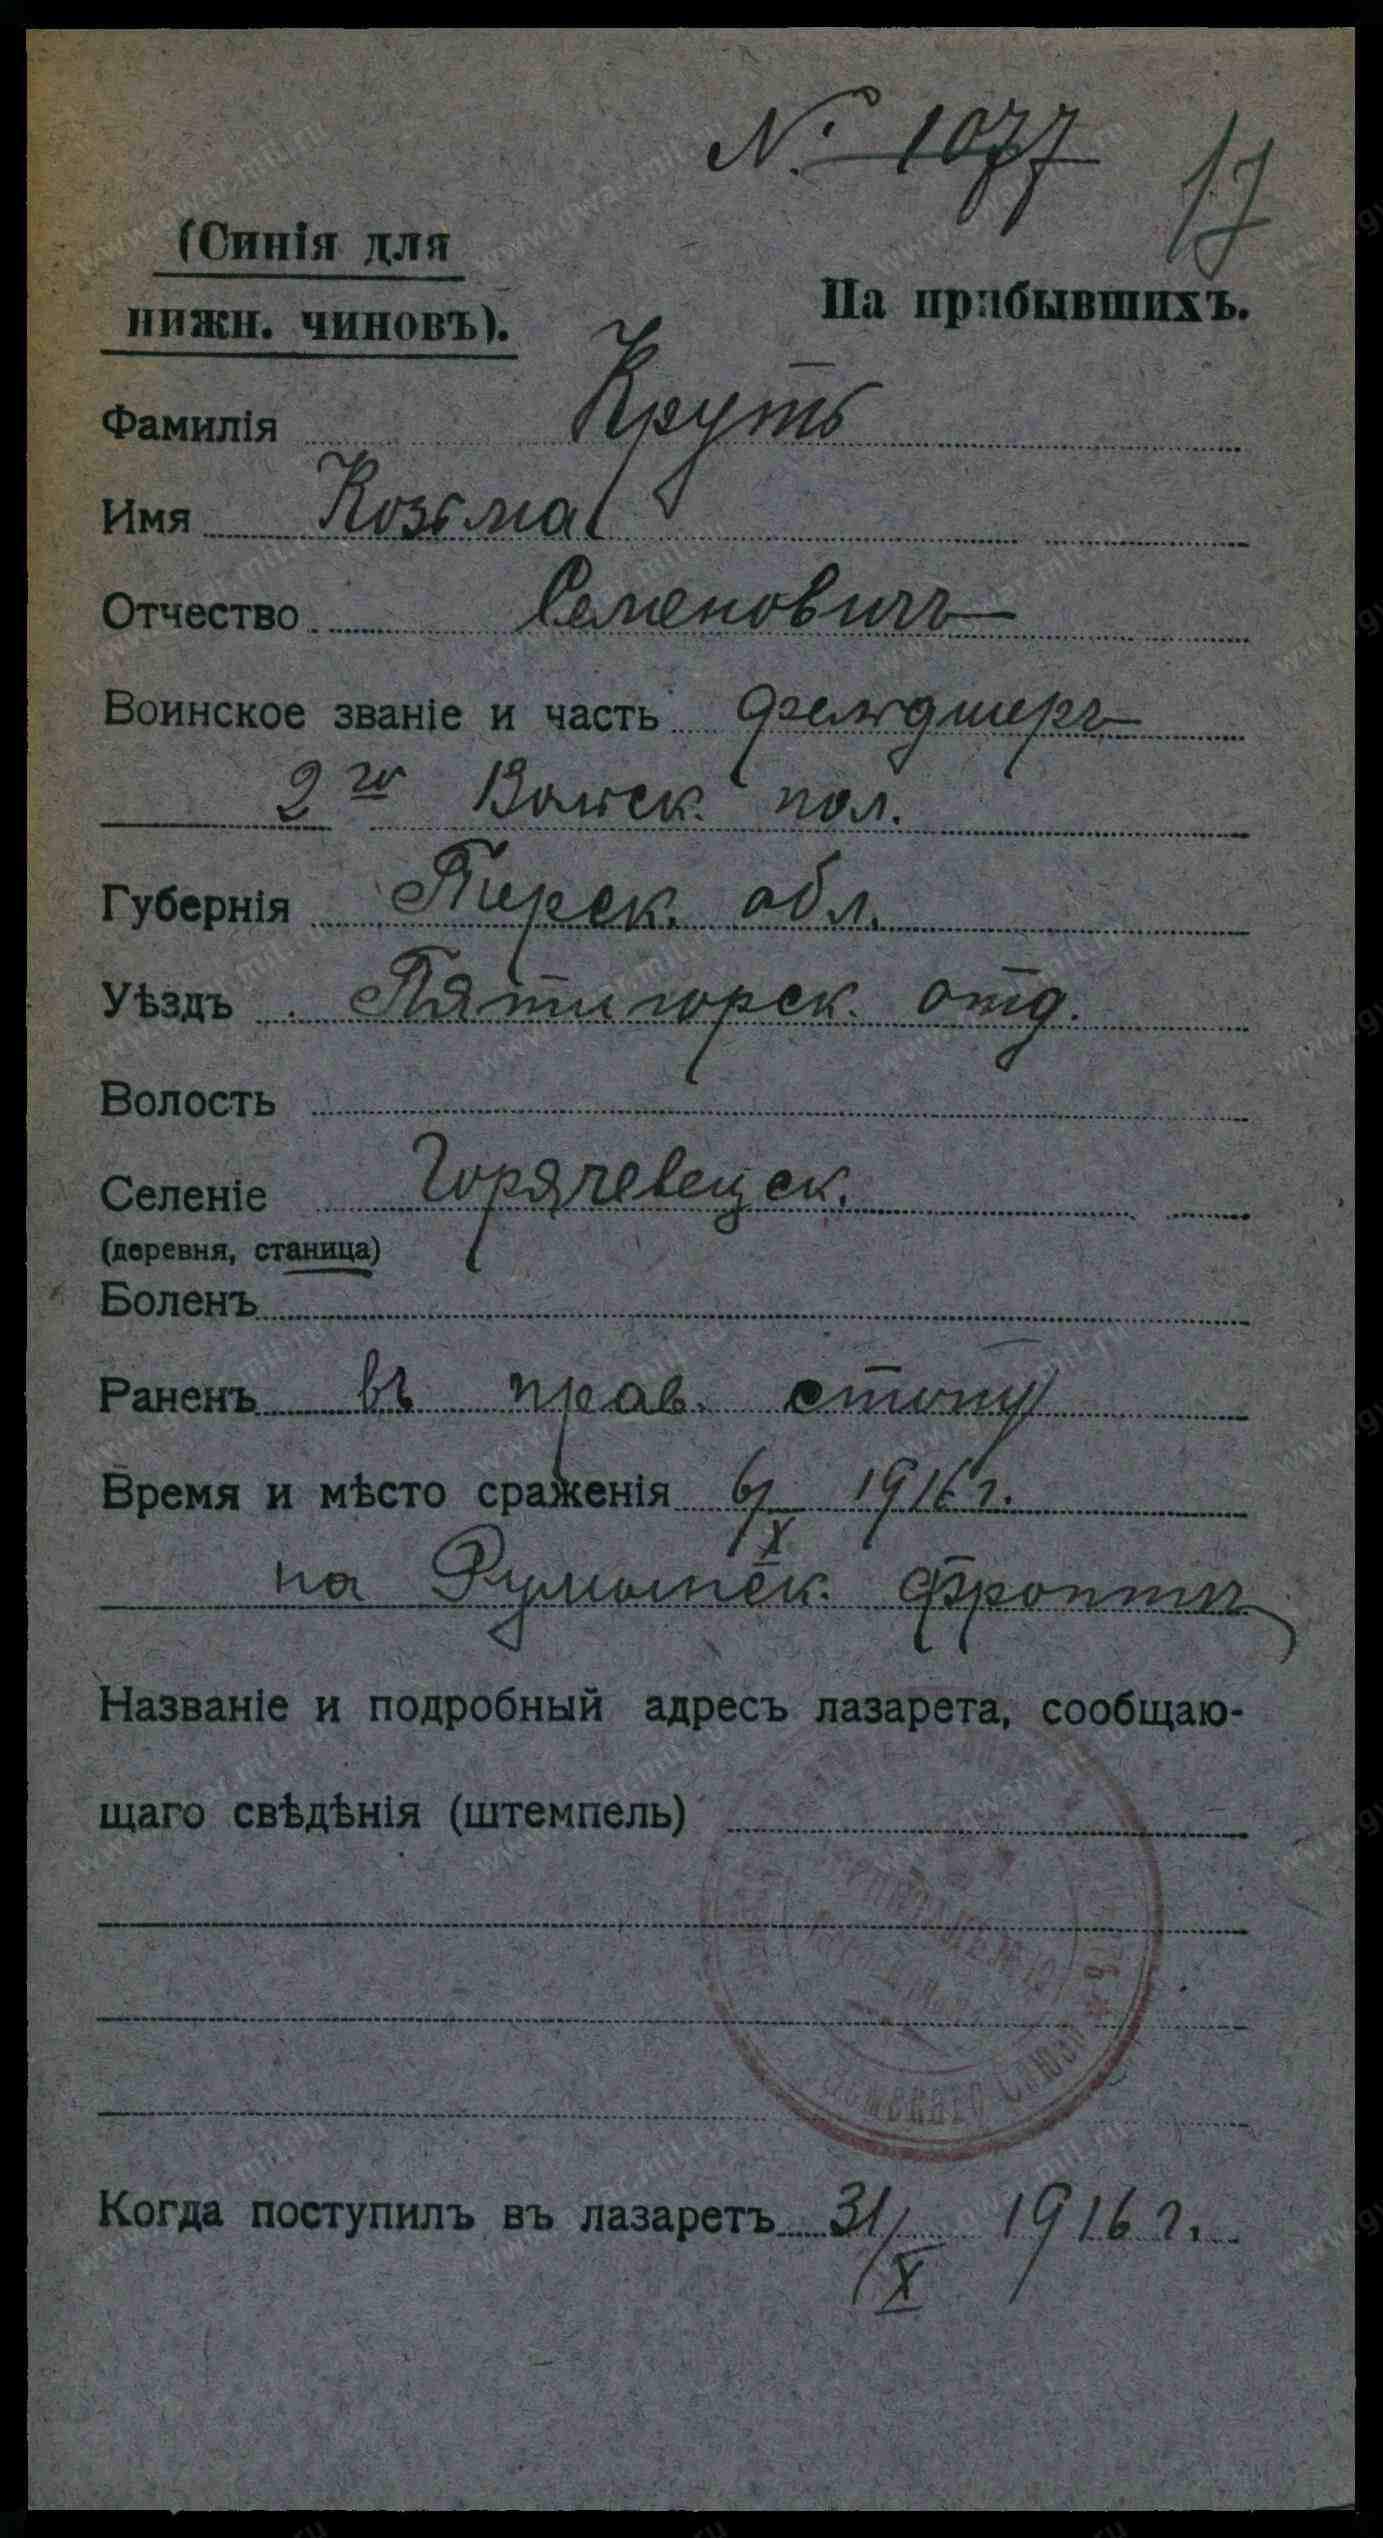 № 1077
17
(Синія для
нижн. чиновъ).
На прибывшихъ.
Фамилія Круть
Имя Козьма
Отчество Семеновичъ
Воинское званіе и часть фельдшеръ
2го Волжск. пол.
Губернія Терск. обл.
Уѣздъ Пятигорск. отд.
Волость
Селеніе Горячевещск.
(деревня, станица)
Боленъ
Раненъ въ прав. стопу
Время и мѣсто сраженія 6/X 1916 г.
на Румынск. фронтѣ
Названіе и подробный адресъ лазарета, сообщаю-
щаго свѣдѣнія (штемпель)
Земскаго Союза
Когда поступилъ въ лазаретъ 31/X 1916 г.
www.gwar.mil.ru